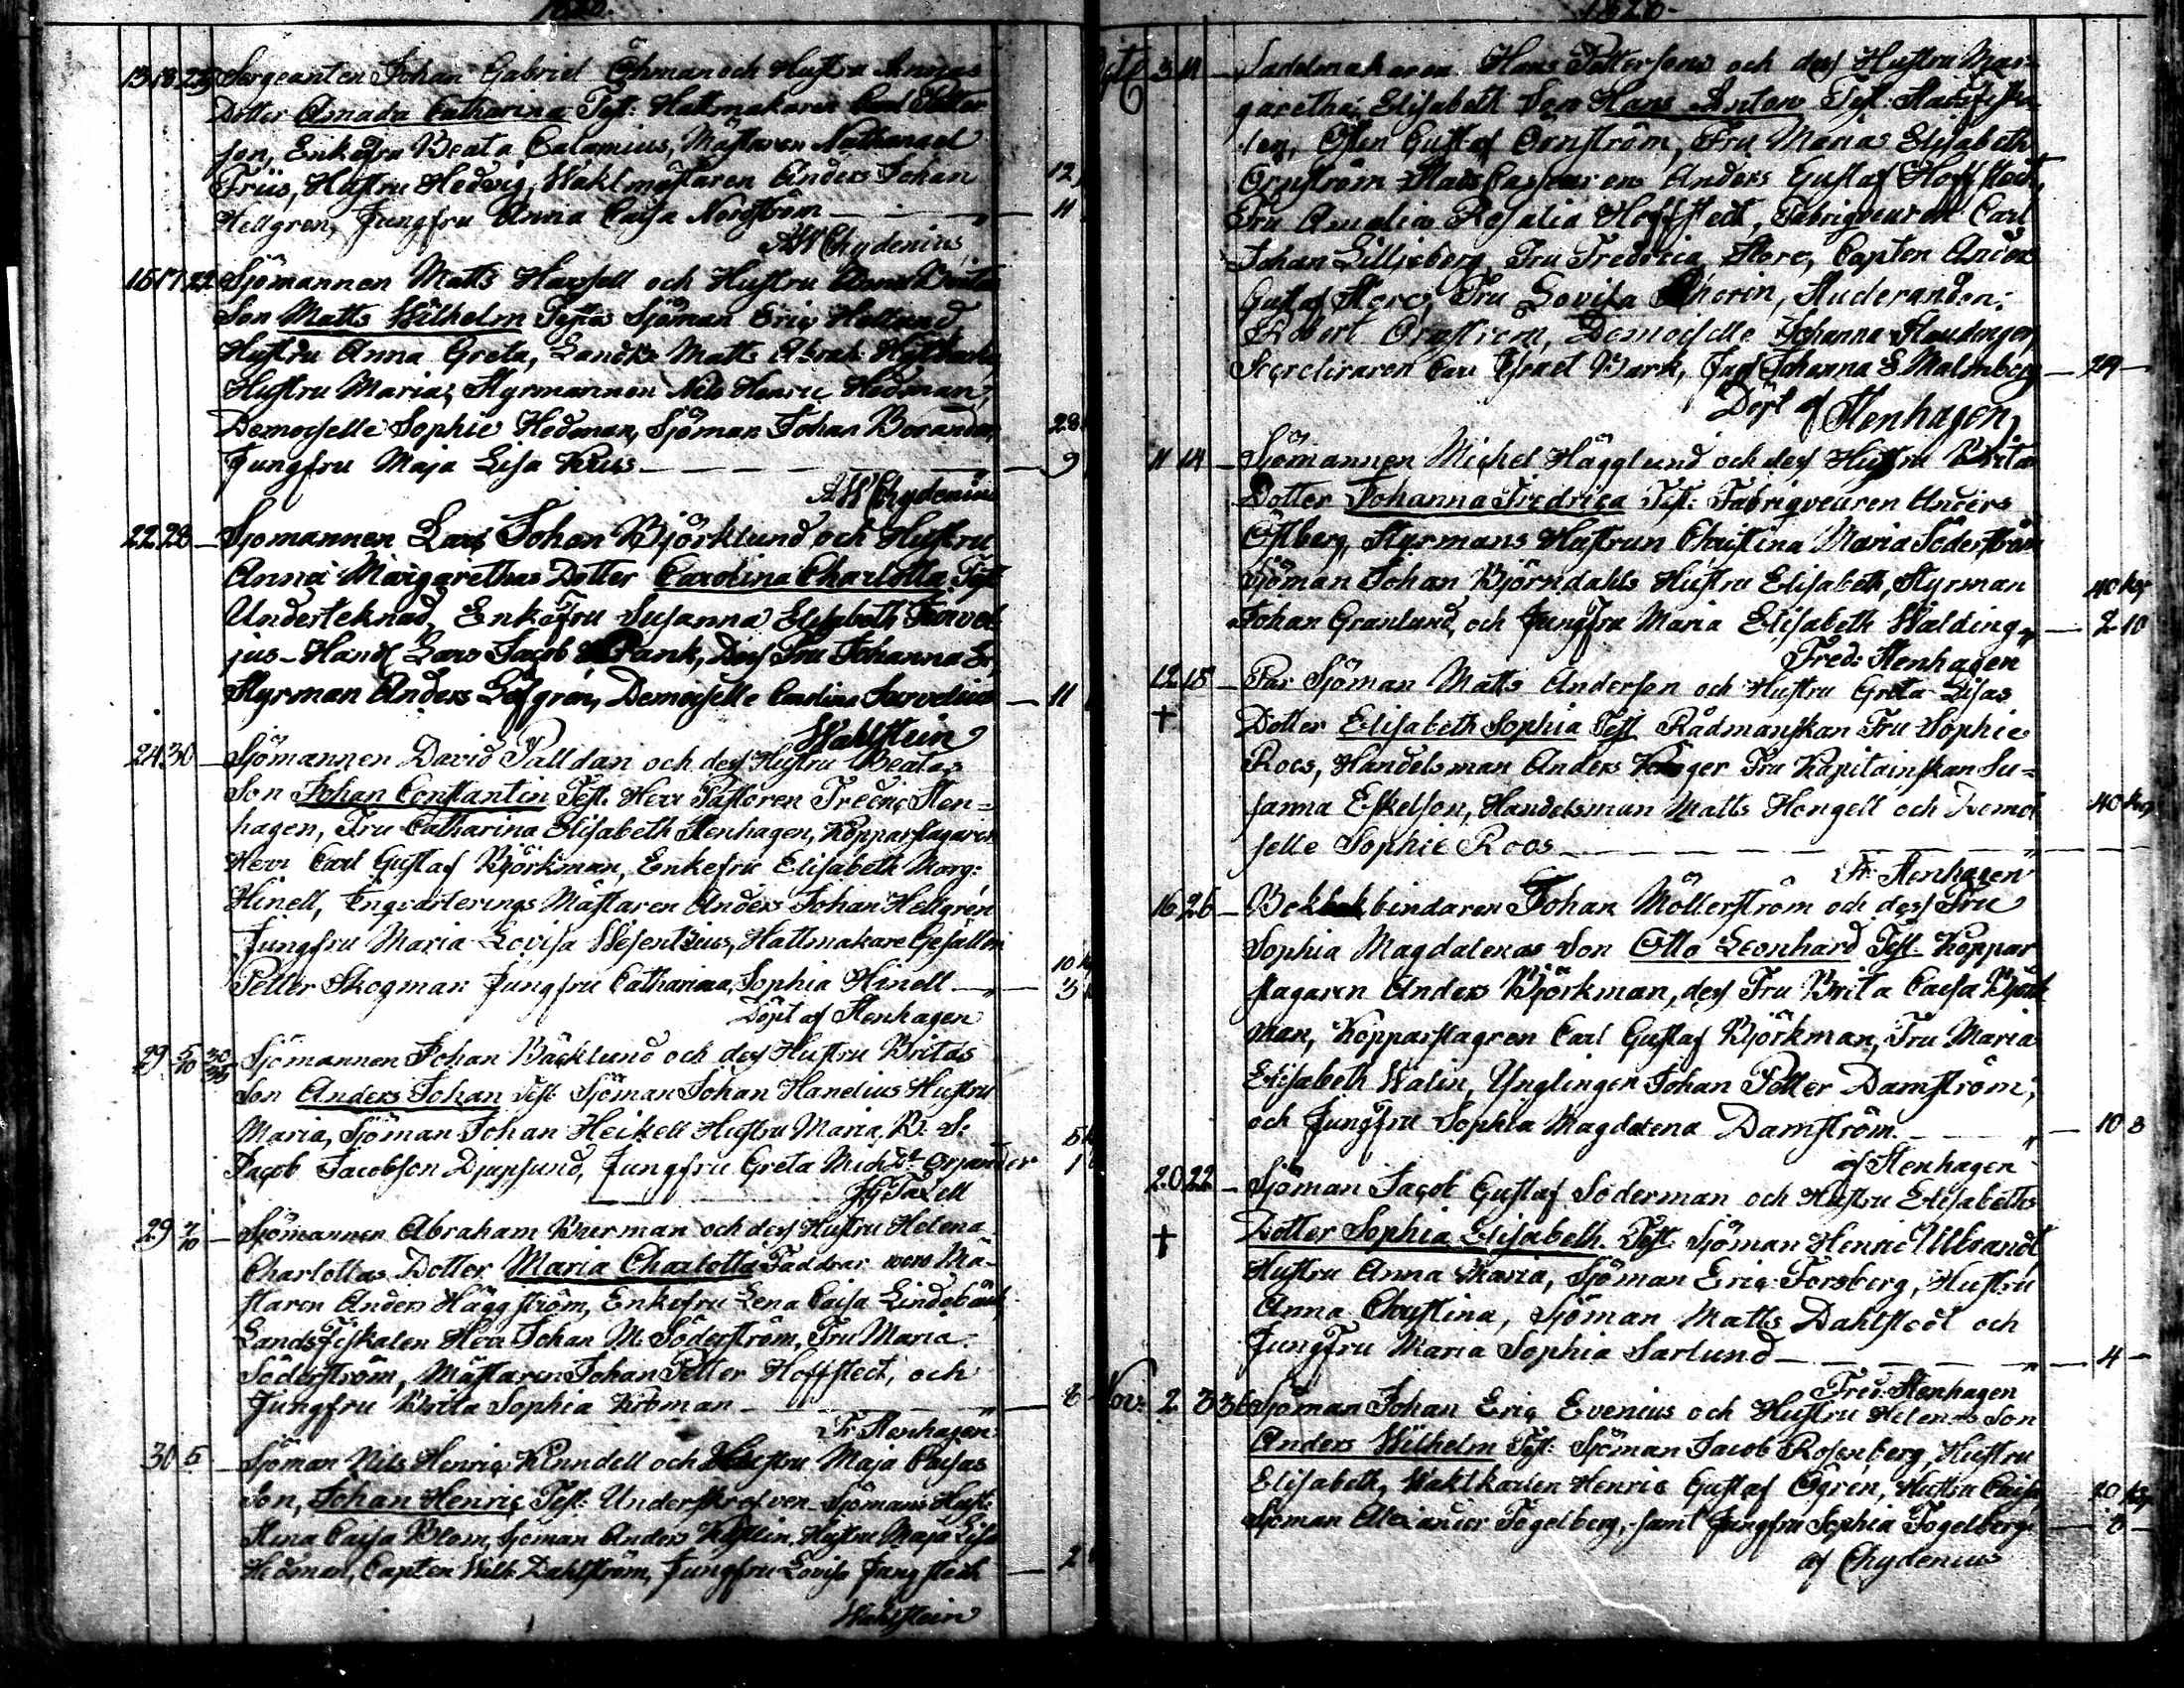 1820.
13 18 23 Sergeanten Johan Gabriel Öhman och Hustru Annas
Dotter Amada Catharina Test: Hattmakaren Carl Petter
son, Enkefru Beata Calamius, Mästaren Nathanael
Friis, Hustru Hedvig, Waktmästaren Anders Johan 12
Hellgren, Jungfru Anna Caisa Nordström — 11
AW Chydenius
15 17 22 Sjömannen Matts Hassell och Hustru Anna Brita
Son Matts Wilhelm Test: Sjöman Eric Holland
Hustru Anna Greta, Matts Abrah:
Hustru Maria, Styrmannen Nils Henric Hedman,
Demoiselle Sophie Hedman, Sjöman Johan 28
Jungfru Maja Lisa — 9
AW Chydenius
22 28 — Sjömannen Lars Johan Björklund och Hustru
Anna Margarethas Dotter Carolina Charlotta Test
Underteknad, Enkefru Susanna Elisabeth Sarvel
jus — Handl Lars Jacob Pank, Dess Fru Johanna
Styrman Anders Löfgren, Demoiselle Carolina Sarvelius — 11
Wahlstein
24 30 — Sjömannen David Palldan och dess Hustru Beatas
Son Johan Constantin Test: Herr Pastoren Fredric Sten=
hagen, Fru Catharina Elisabeth Stenhagen, Kopparslagaren
Herr Carl Gustaf Björkman, Enkefru Elisabeth Marg:
Hinell, Inqvarterings Mästaren Anders Johan Hellgren
Jungfru Maria Lovisa Wesentzius, Hattmakare Gesällen
Petter Skogman Jungfru Catharina Sophia Hinell — 10 3
Döpt af Stenhagen
29 5/10 30/35 Sjömannen Johan Bäcklund och dess Hustru Britas
Son Anders Johan Test: Sjöman Johan Hanelius Hustru
Maria, Sjöman Johan Heikell Hustru Maria, B. S. 5
Jacob Jacobson Djupsund, Jungfru Greta Mich: Dr Orjander 1
JG Taxell
29 2/10 — Sjömannen Abraham Burman och dess Hustru Helena
Charlottas Dotter Maria Charlotta Faddrar woro Mä-
staren Anders Häggström, Enkefru Lena Caisa Lindebäck,
Landsfiskalen Herr Johan M. Söderström, Fru Maria
Söderström, Mästaren Johan Petter Hoffstedt, och
Jungfru Brita Sophia — 8
Fr: Stenhagen
30 5 — Sjöman Nils Henric Kinndell och Hustru Maja Caisas
Son, Johan Henric Test: Underskrefven Sjömans Hust:
Stina Caisa Blom, Sjöman Anders Hustru Maja Lisa
Hedman, Capten Wilh: Dahlström, Jungfru Lovisa — 2
Wahlstein
1820 —
3 11 — Sadelmakaren Hans Pettersons och dess Hustru Mar-
garetha Elisabeth Son Hans Anton Test: Stadsfiska
len, Osten Gustaf Ornström, Fru Maria Elisabeth
Ornström Stads Cassaren Anders Gustaf Hoffstedt,
Fru Amalia Rosalia Hoffstedt, Fabriqueuren Carl
Johan Lilljeberg, Fru Fredrica Store, Capten Anders
Gustaf Store, Fru Lovisa Thorin, Studeranden:
Robert Ornström, Demoiselle Johanna
Carl Israel Wark, Jungf Johanna S. Malmberg — 24 —
Döpt af Stenhagen
11 14 — Sjömannen Michel Hägglund och dess Hustru Britas
Dotter Johanna Fredrica Test: Fabriqveuren Anders
Östberg, Styrmans Hustrun Christina Maria Söderström
Sjöman Johan Björndahls Hustru Elisabeth, Styrman 40 kop
Johan Granlund, och Jungfru Maria Elisabeth Walding — 2 10
Fred: Stenhagen
12 15 — Far Sjöman Matts Anderson och Hustru Greta Lisas
† Dotter Elisabeth Sophia Test Rådmanskan Fru Sophie
Roos, Handelsman Anders Fru Kapitainskan Su=
sanna Eskelson, Handelsman Matts Hongell och Demoi 40 kop
selle Sophie Roos —
Fr: Stenhagen
16 26 — Bokbindaren Johan Möllerström och dess Fru
Sophia Magdalenas Son Otto Leonhard Test: Koppar
slagaren Anders Björkman, dess Fru Brita Caisa Björk
man, Kopparslagren Carl Gustaf Björkman, Fru Maria
Elisabeth Walin, Ynglingen Johan Petter Damström,
och Jungfru Sophia Magdalena Damström. — 10 8
af Stenhagen
20 22 — Sjöman Jacob Gustaf Söderman och Hustru Elisabeths
† Dotter Sophia Elisabeth. Test: Sjöman Henric Ulbrandt
Hustru Anna Maria, Sjöman Eric Forsberg, Hustru
Anna Christina, Sjöman Matts Dahlstedt och
Jungfru Maria Sophia Sarlund — 4 —
Fred: Stenhagen
Nov: 2 3 36 Sjöman Johan Eric Evenius och Hustru Helenas Son
Anders Wilhelm Test: Sjöman Jacob Rosenberg, Hustru
Elisabeth, Waktkarlen Henric Gustaf Ögren, Hustru Caisa 20 kop
Sjöman Alexander Fogelberg, samt Jungfru Sophia Fogelberg — 8 —
af Chydenius